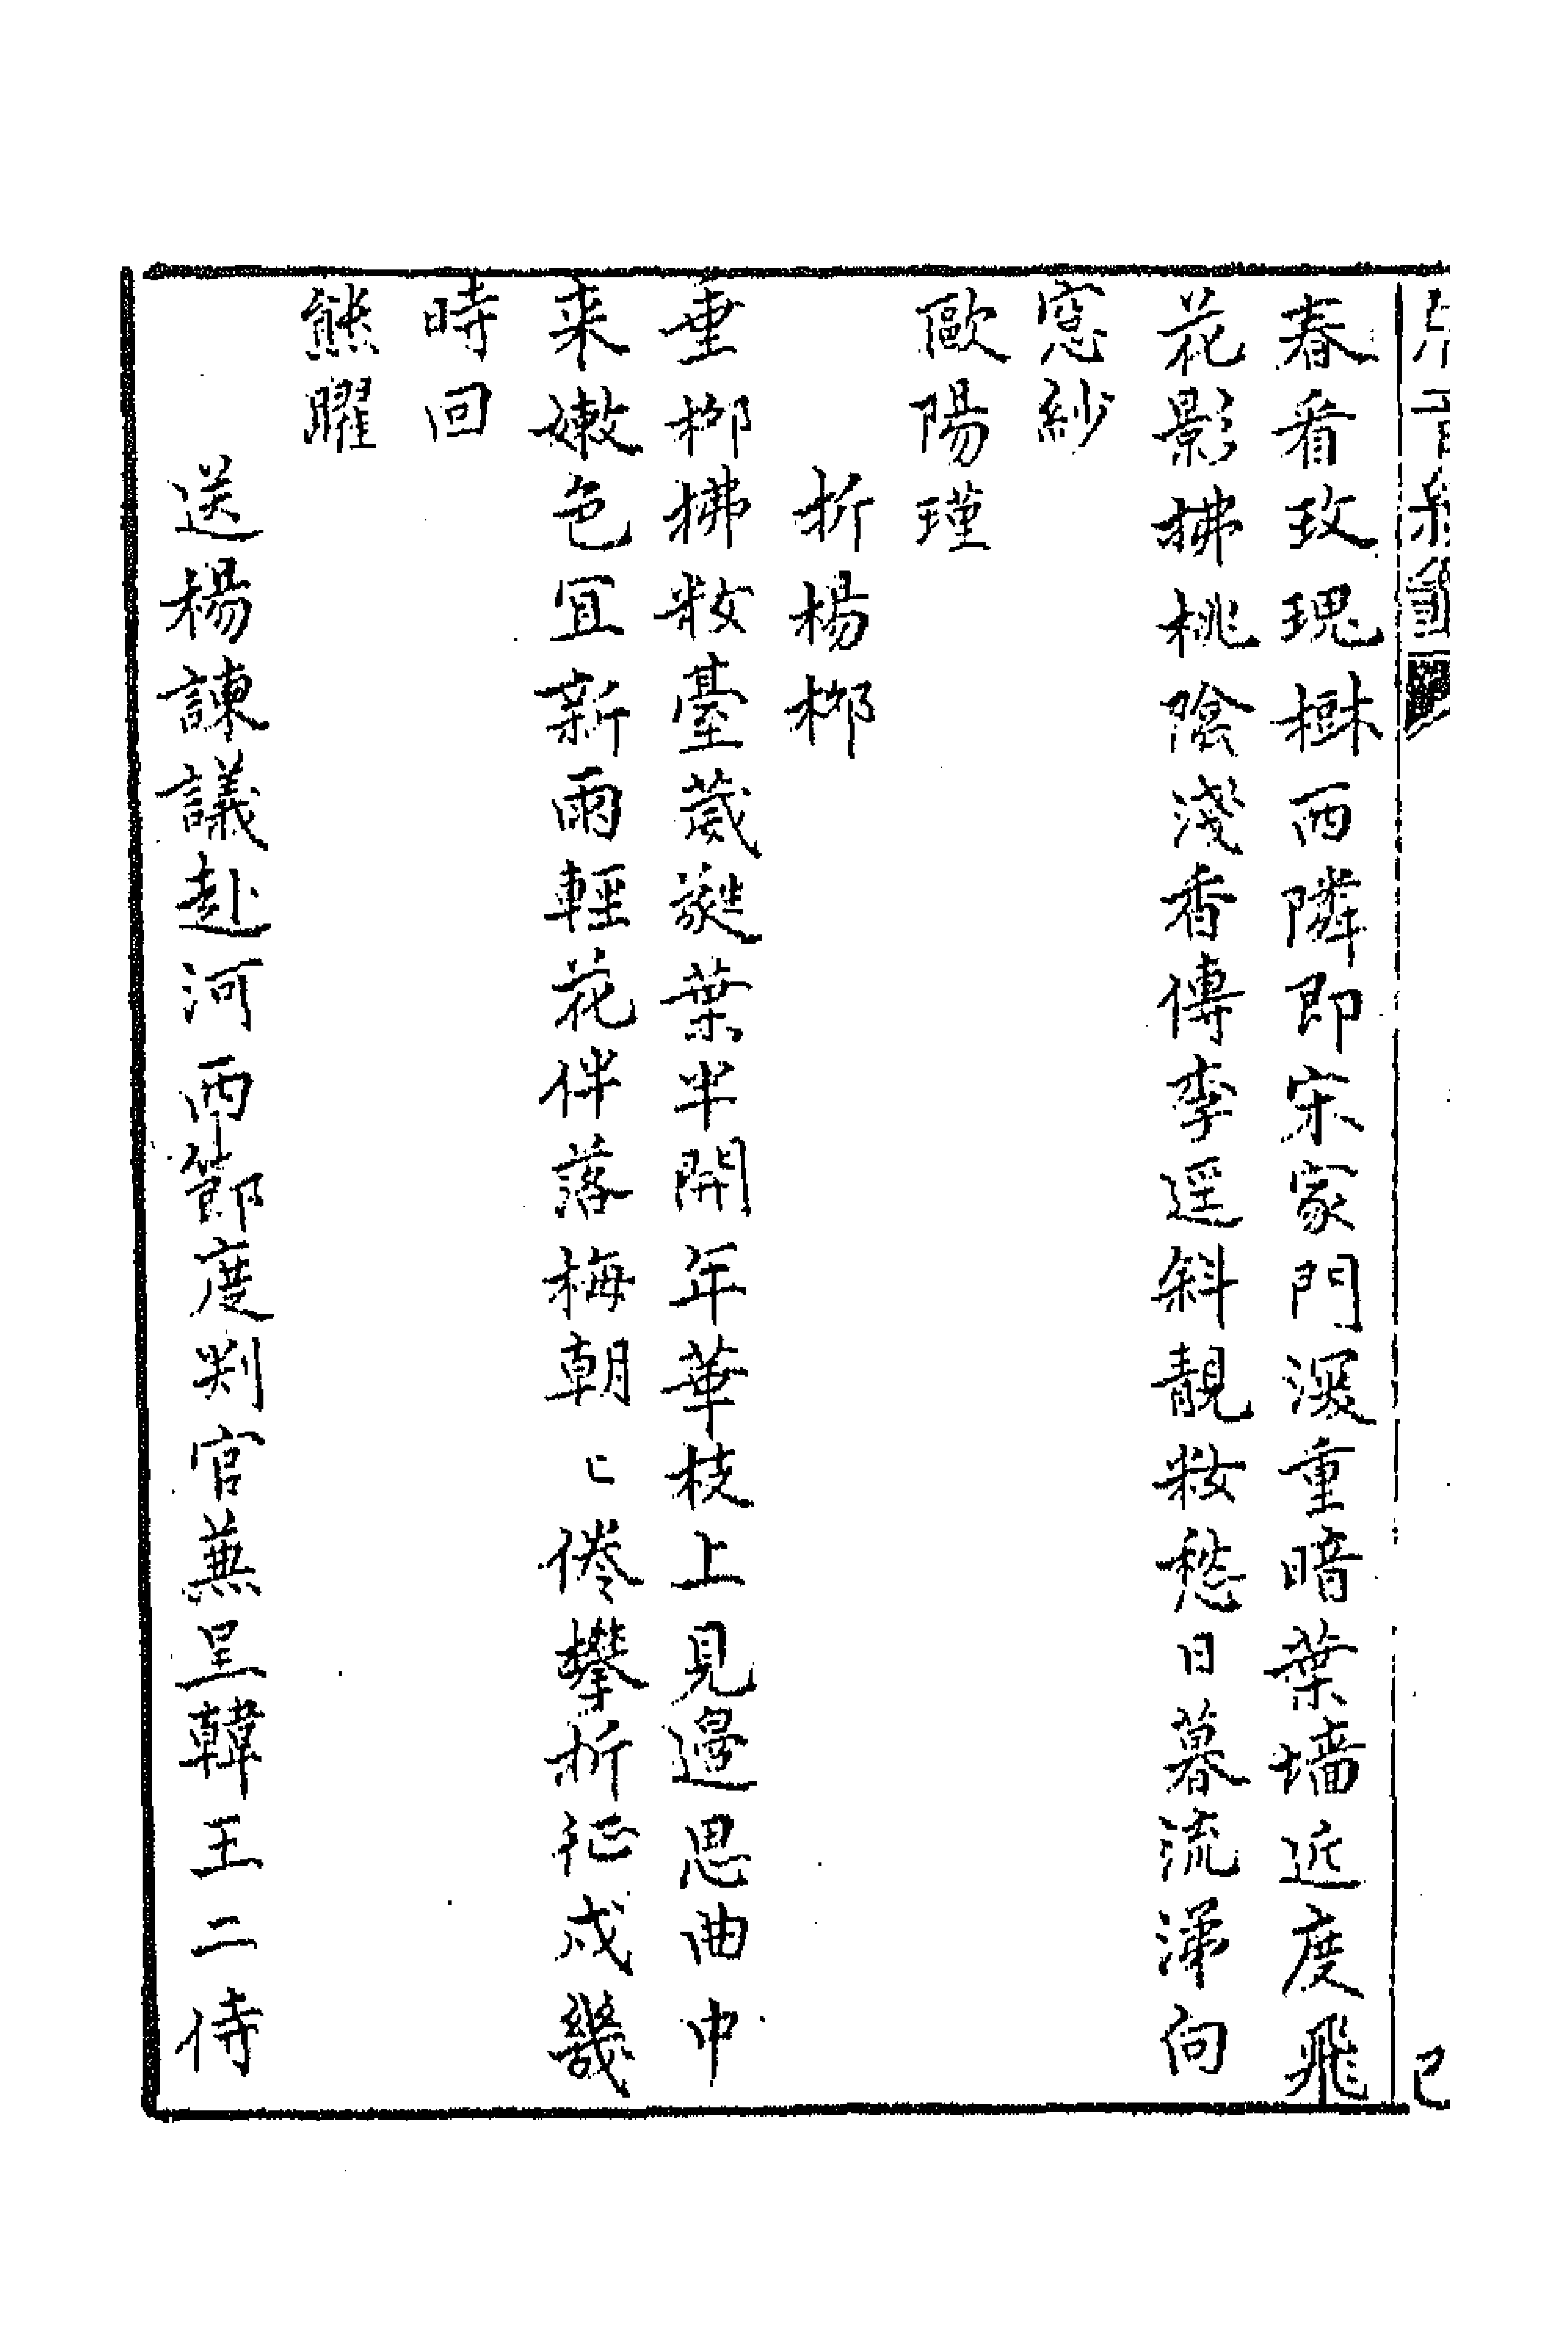 春看玫瑰樹西隣即宋家門深重暗葉墻近度飛
花影拂桃陰淺香傳李逕斜靚粧愁日暮流涕向
窓紗
歐陽瑾
折楊柳
垂柳拂粧臺葳蕤葉半開年華枝上見邉思曲中
来嫩色宜新雨輕花伴落梅朝〻倦攀折征戍幾
時回
熊曜
送楊諫議赴河西節度判官兼呈韓王二侍